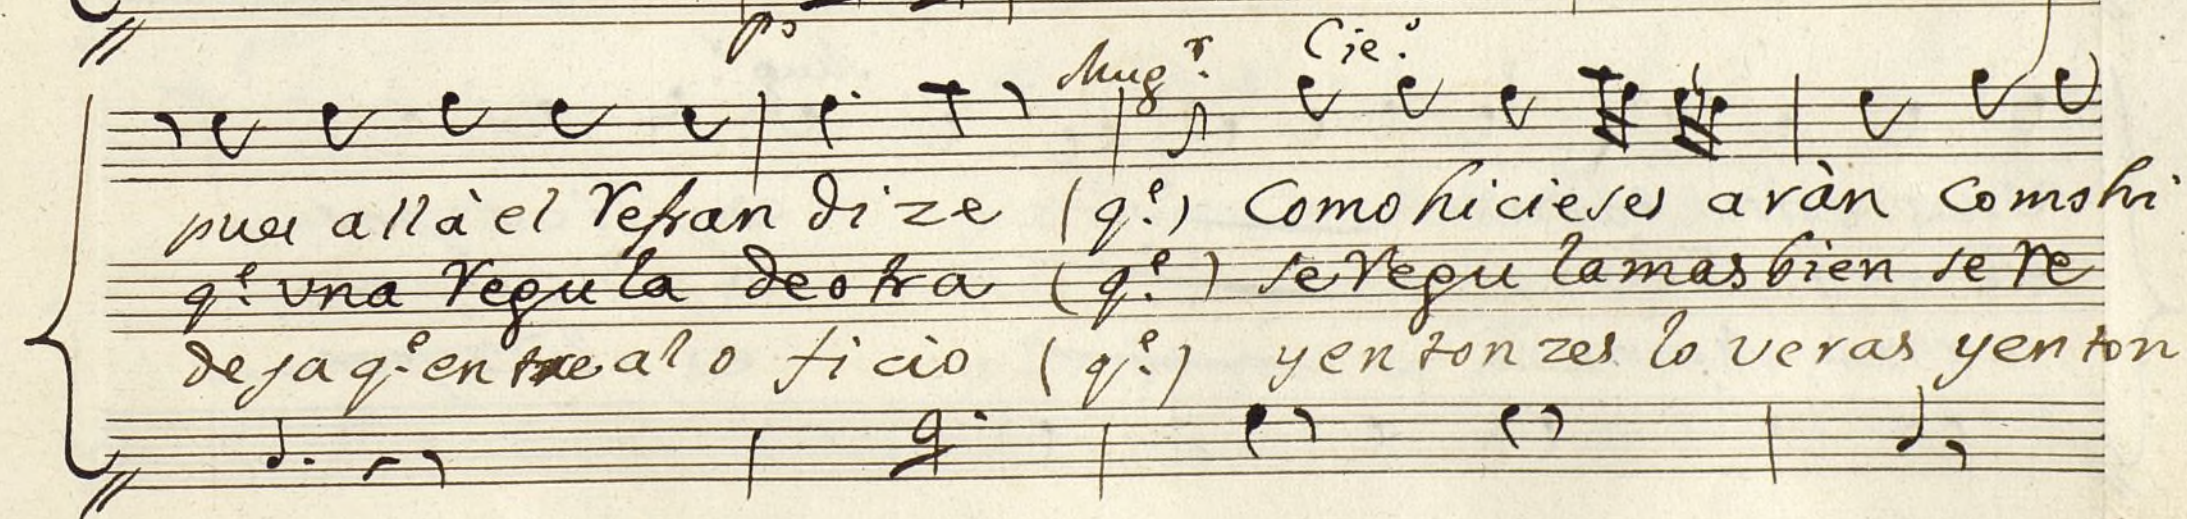 po
Mug.r Cie.o
pues allà el refran dize (q.e) Como hicieses aràn Como hi
q.e una regula de otra (q.e) se regula mas bien se re
deja q.e entre al oficio (q.e) y entonzes lo veras y enton